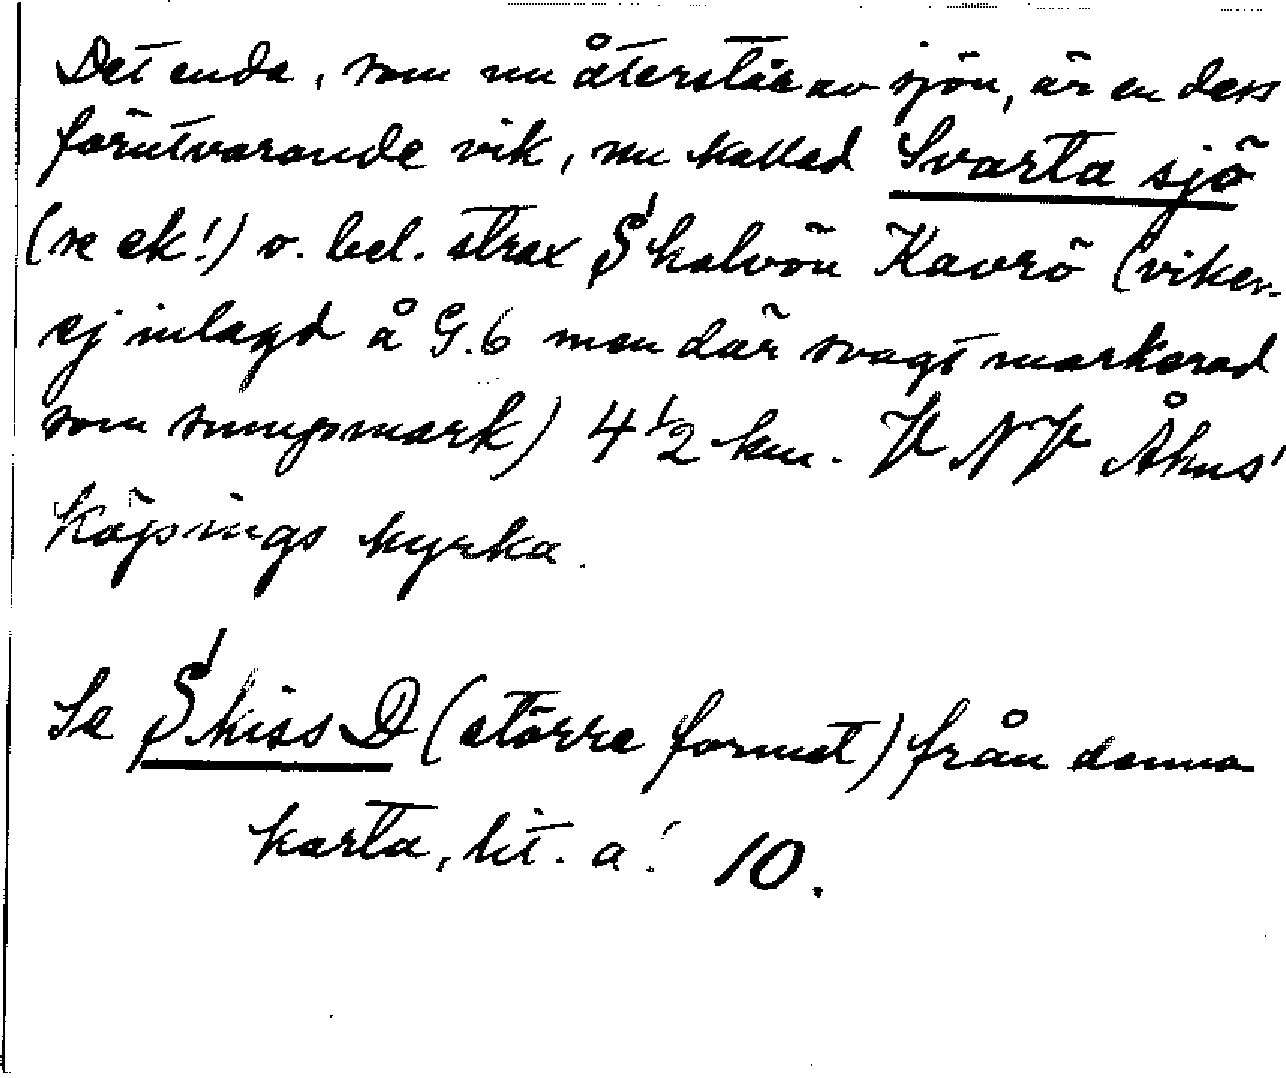 Det enda, som nu återstår av sjön, är en dess
förutvarande vik, nu kallad Svarta sjö
(se ek!) o. bel. strax S halvön Kavrö (viken
ej inlagd å G.6 men där svagt markerad
som sumpmark) 4 1/2 km. V NV Åhus'
köpings kyrka.
Se Skiss D (större format) från denna
karta, lit. a! 10.